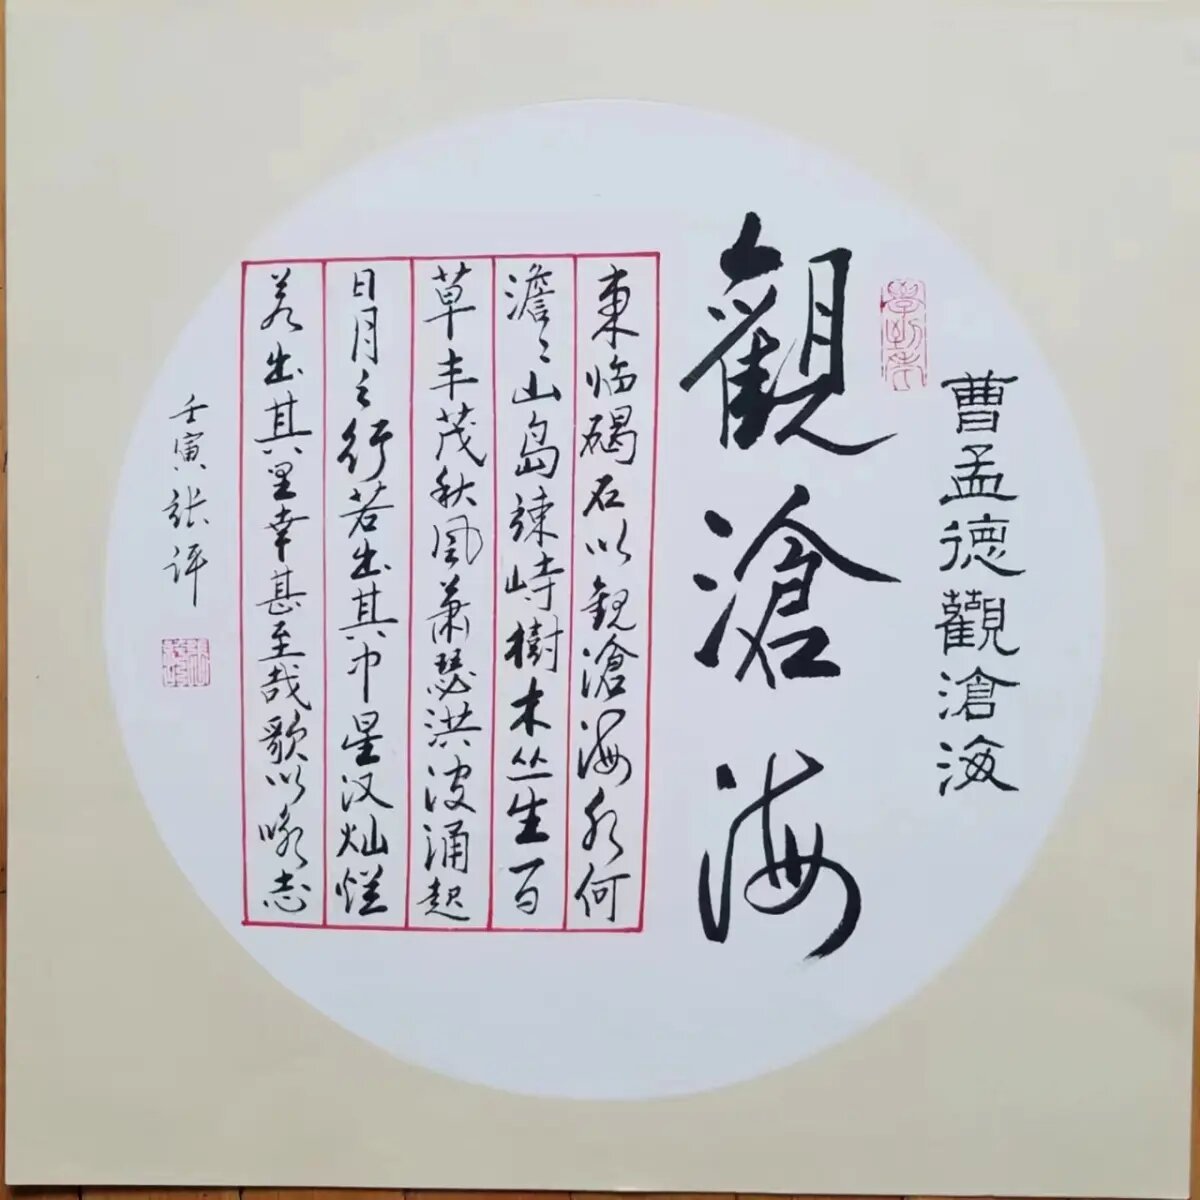 曹孟德觀滄海
觀滄海
東临碣石以觀滄海水何
澹々山岛竦峙樹木丛生百
草丰茂秋风萧瑟洪波涌起
日月之行若出其中星汉灿烂
若出其里幸甚至哉歌以咏志
壬寅张评